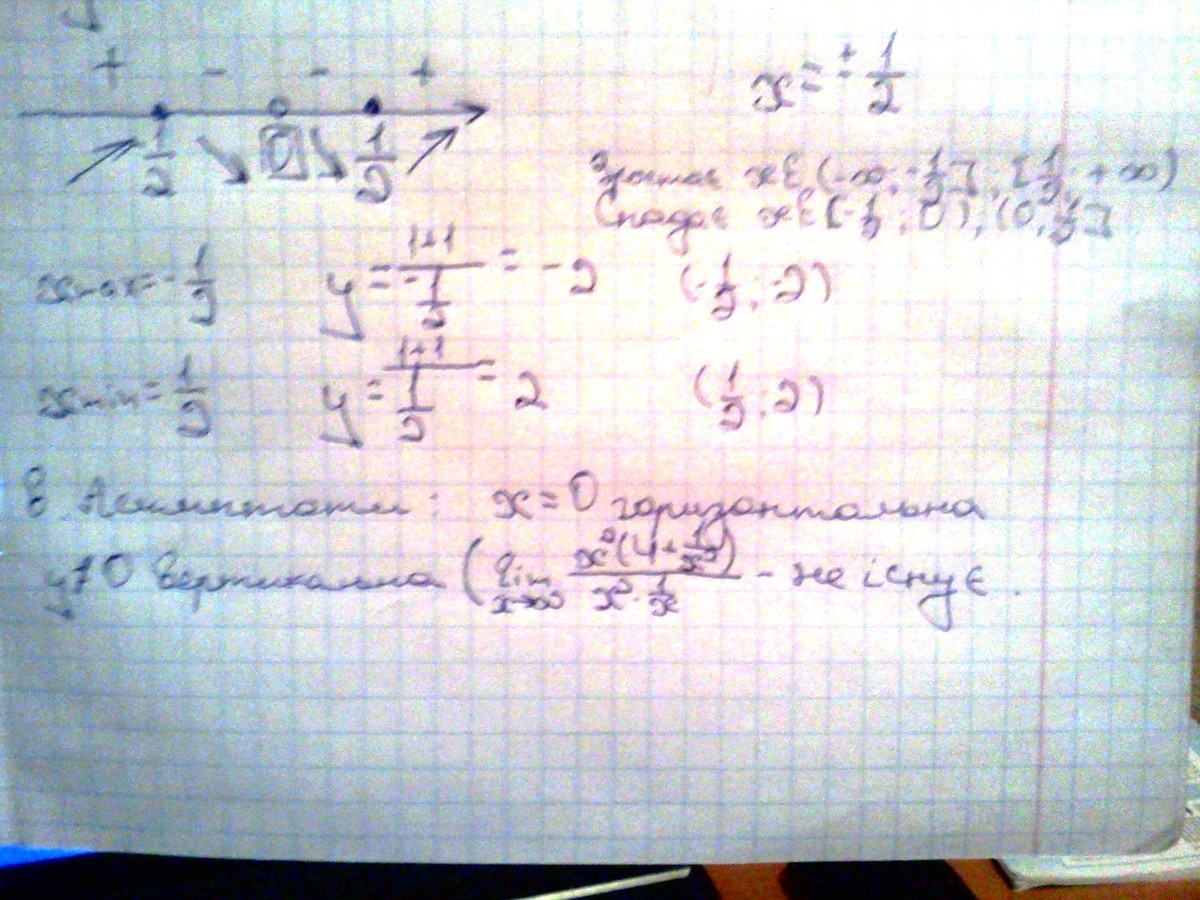 + - - +
x = ± 1/2
1/2 0 1/2
Зростає x∈(-∞; -1/2]; [1/2; +∞)
Спадає x∈[-1/2; 0); (0; 1/2]
xmax = -1/2 y = (1+1)/(-1/2) = -2 (-1/2; -2)
xmin = 1/2 y = (1+1)/(1/2) = 2 (1/2; 2)
8. Асимптоти: x = 0 горизонтальна
y≠0 вертикальна (lim x→∞ x²(4+1/x²)/(x²·1/x) - не існує.